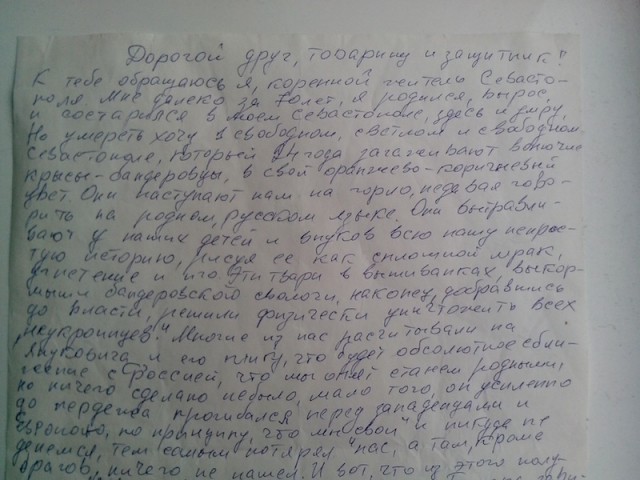 Дорогой друг, товарищ и защитник!
К тебе обращаюсь я, коренной житель Севасто-
поля. Мне далеко за 70 лет, я родился, вырос,
и состарился в моем Севастополе, здесь и умру,
Но умереть хочу в свободном, светлом и свободном
Севастополе, который 24 года загаживают вонючие
крысы-бандеровцы, в свой оранжево-коричневый
цвет. Они наступают нам на горло, не давая гово-
рить на родном, русском языке. Они вытравли-
вают у наших детей и внуков всю нашу непрос-
тую историю, рисуя ее как сплошной мрак,
угнетение и иго. Эти твари в вышиванках, выкор-
мыши бандеровской сволочи, наконец, добравшись
до власти, решили физически уничтожить всех
"неукраинцев." Многие из нас расчитывали на
Януковича и его клику, что будет обсолютное сбли-
жение с Россией, что мы опять станем родными,
но ничего сделано небыло, мало того, он усиленно
до пердежа прогибался перед западенцами и
Европой, по принципу, что мы "свои" и никуда не
денемся, тем самым потерял "нас", а там, кроме
врагов, ничего не нашел. И вот, что из этого полу-